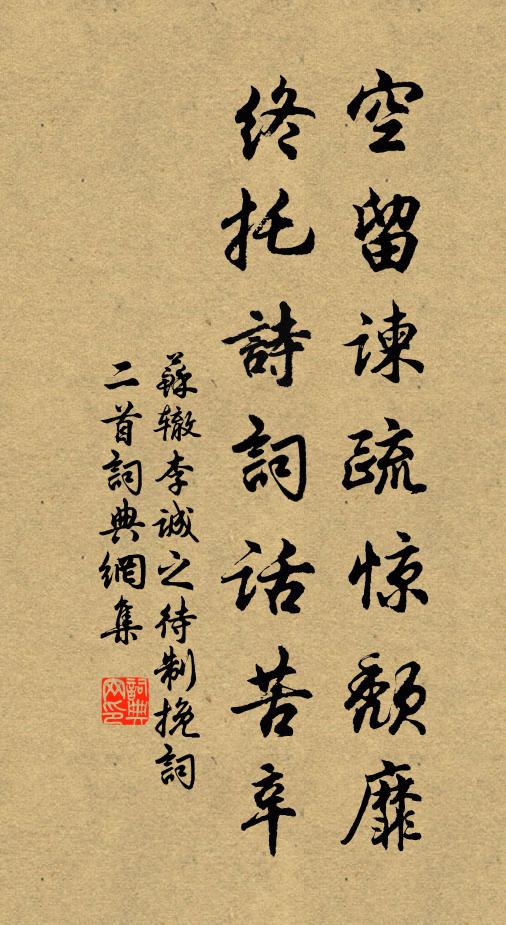 空留谏疏惊颓靡
终托詩詞话苦辛
蘇辙李诚之待制挽詞
二首詞典網集
詞典网印